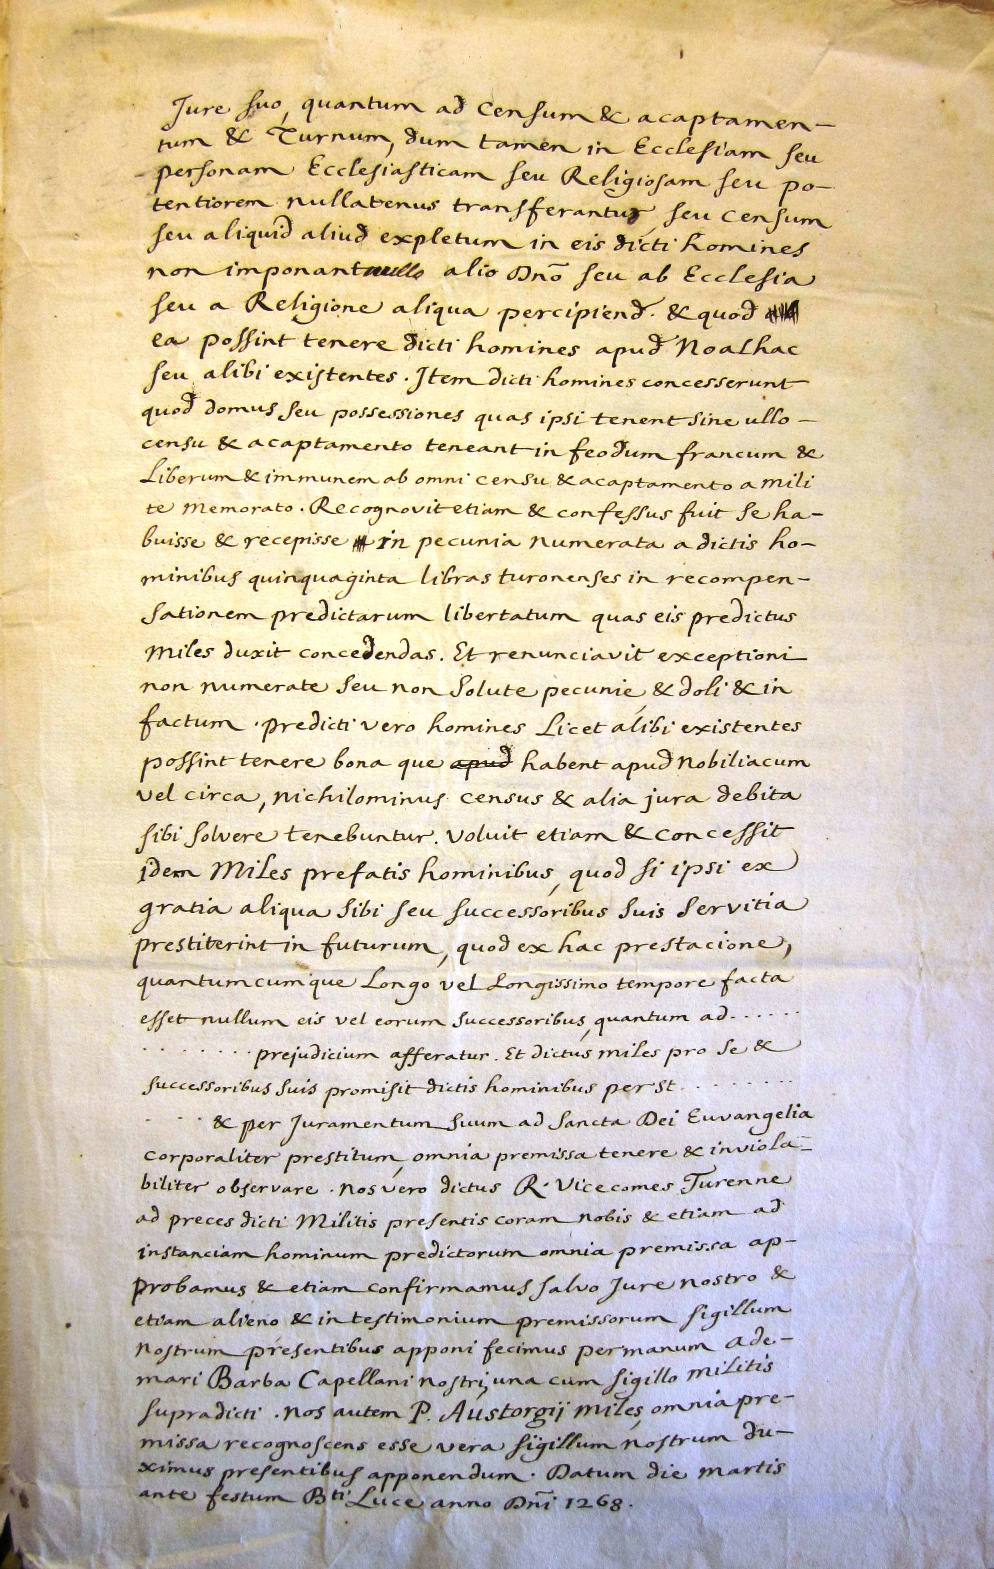 Jure suo, quantum ad censum & acaptamen-
tum & Turnum, dum tamen in Ecclesiam seu
personam Ecclesiasticam seu Religiosam seu po-
tentiorem nullatenus transferantur, seu censum
seu aliquid aliud expletum in eis dicti homines
non imponant nullo alio Dnō seu ab Ecclesia
seu a Religione aliqua percipiend. & quod
ea possint tenere dicti homines apud Noalhac
seu alibi existentes. Item dicti homines concesserunt
quod domus seu possessiones quas ipsi tenent sine ullo
censu & acaptamento teneant in feodum francum &
Liberum & immunem ab omni censu & acaptamento a mili
te memorato. Recognovit etiam & confessus fuit se ha-
buisse & recepisse in pecunia numerata a dictis ho-
minibus quinquaginta libras turonenses in recompen-
sationem predictarum libertatum quas eis predictus
Miles duxit concedendas. Et renunciavit exceptioni
non numerate seu non solute pecunie & doli & in
factum. predicti vero homines Licet alibi existentes
possint tenere bona que apud habent apud Nobiliacum
vel circa, nichilominus census & alia jura debita
sibi solvere tenebuntur. voluit etiam & concessit
idem Miles prefatis hominibus, quod si ipsi ex
gratia aliqua sibi seu successoribus suis servitia
prestiterint in futurum, quod ex hac prestacione,
quantumcumque Longo vel Longissimo tempore facta
esset nullum eis vel eorum successoribus, quantum ad......
.......prejudicium afferatur. Et dictus miles pro se &
successoribus suis promisit dictis hominibus per st........
... & per Juramentum suum ad Sancta Dei Euvangelia
corporaliter prestitum, omnia premissa tenere & inviola-
biliter observare. Nos vero dictus R. Vicecomes Turenne
ad preces dicti Militis presentis coram nobis & etiam ad
instanciam hominum predictorum omnia premissa ap-
probamus & etiam confirmamus salvo Jure nostro &
etiam alieno & in testimonium premissorum sigillum
nostrum presentibus apponi fecimus per manum ade-
mari Barba Capellani nostri, una cum sigillo militis
supradicti. Nos autem P. Austorgij miles, omnia pre-
missa recognoscens esse vera sigillum nostrum du-
ximus presentibus apponendum. Datum die martis
ante festum Bti Luce anno Dnī 1268.